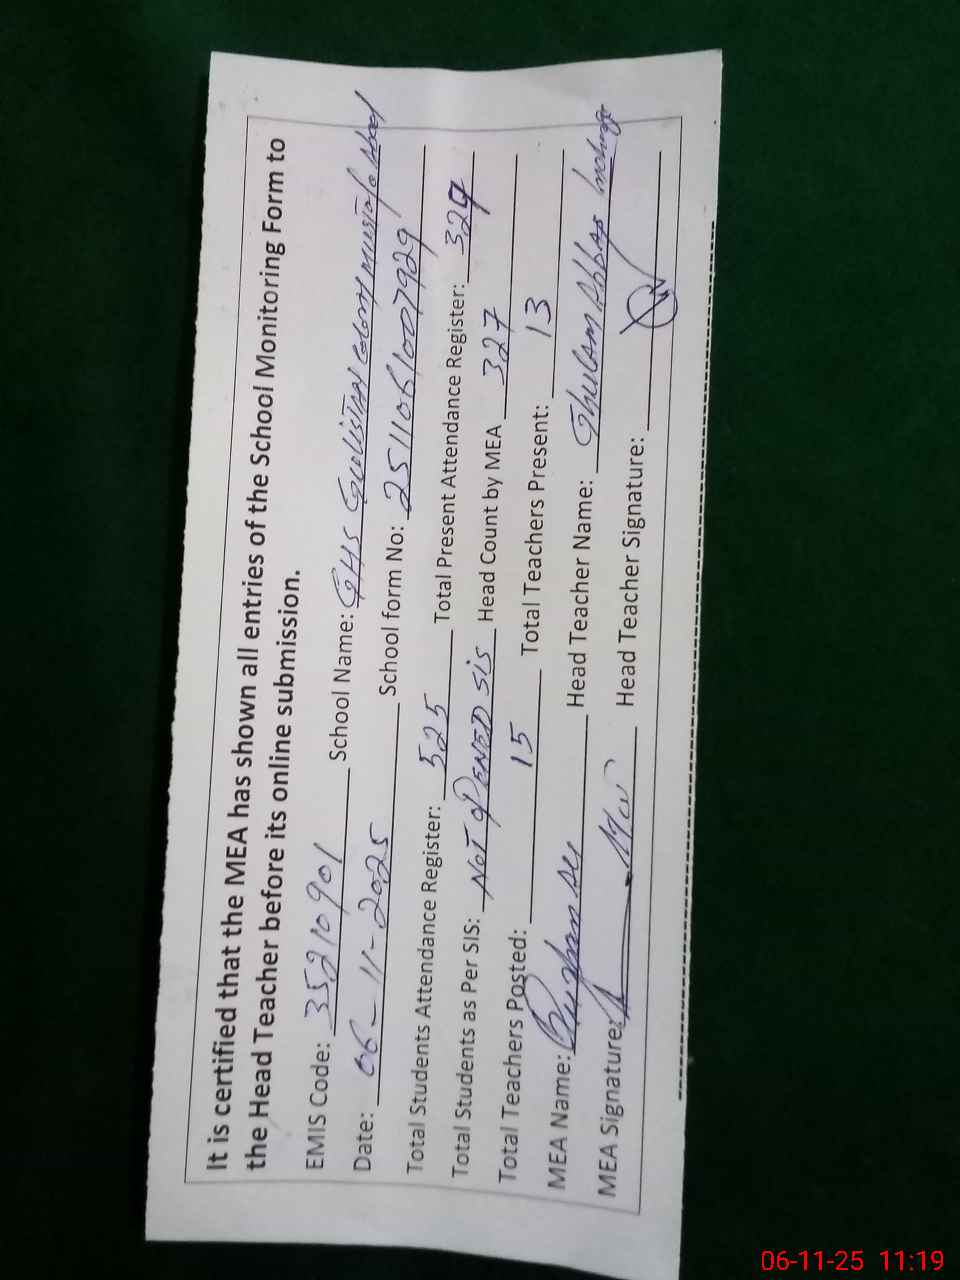 It is certified that the MEA has shown all entries of the School Monitoring Form to
the Head Teacher before its online submission.
EMIS Code: 35210901 School Name: GHS Gulistan colony Mustafa Abad
Date: 06-11-2025 School form No: 2511061007929
Total Students Attendance Register: 525 Total Present Attendance Register: 327
Total Students as Per SIS: NOT OPENED SIS Head Count by MEA 327
Total Teachers Posted: 15 Total Teachers Present: 13
MEA Name: Head Teacher Name: Ghulam Abbas
MEA Signature: Head Teacher Signature:
06-11-25 11:19